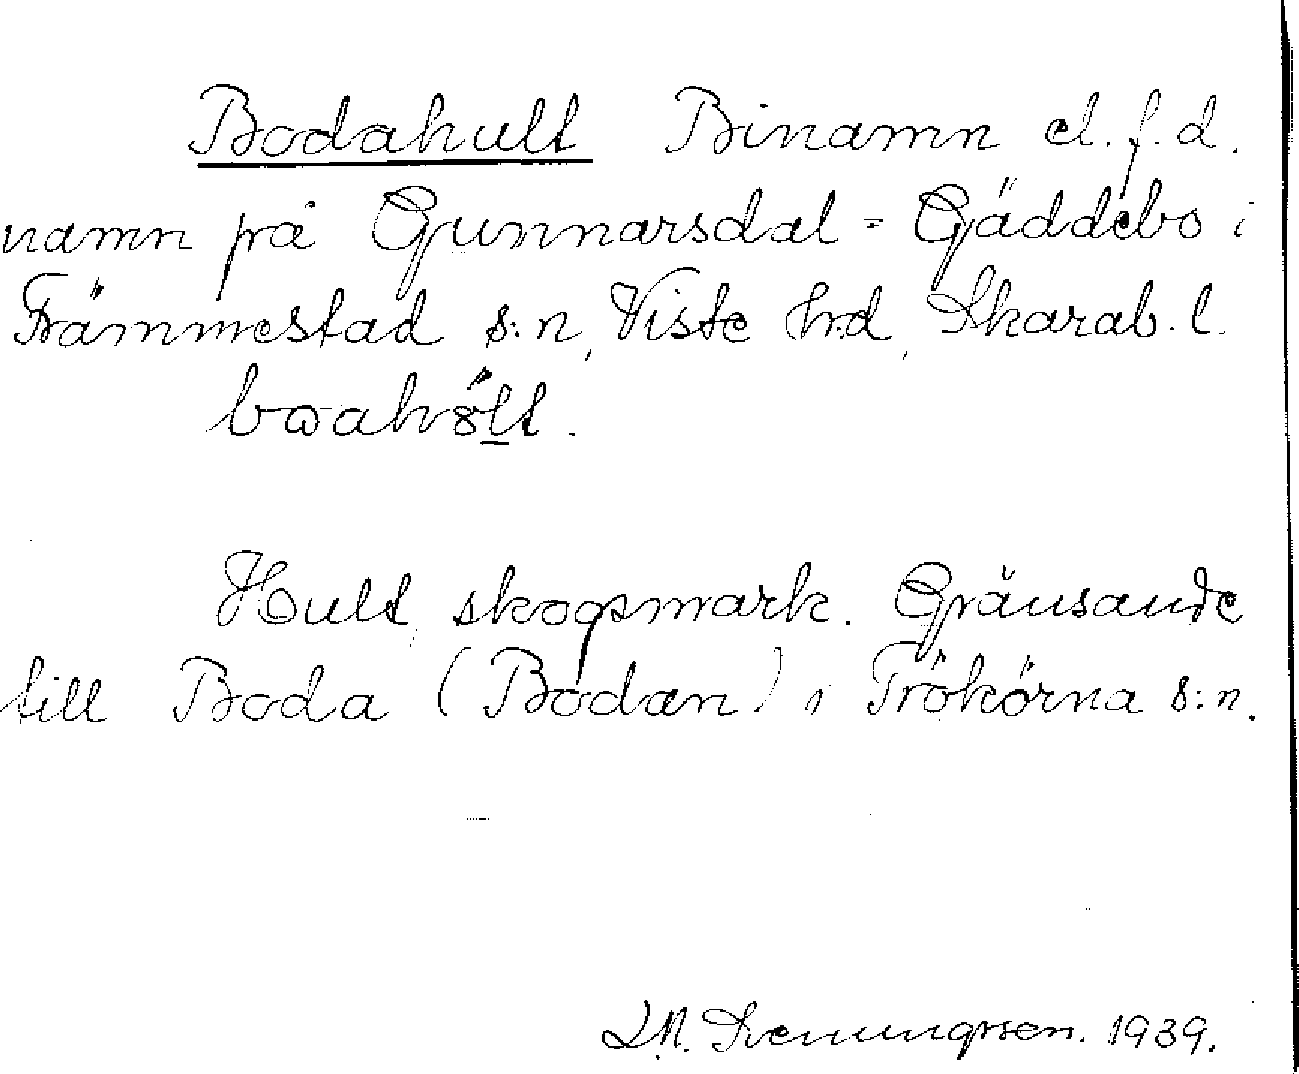 Bodahult Binamn el. f.d.
namn på Gunnarsdal = Gäddebo i
Främmestad s:n, Viste hrd, Skarab. l.
Hult, skogsmark. Gränsande
till Boda (Bodan) i Frökörna s:n.
1939.